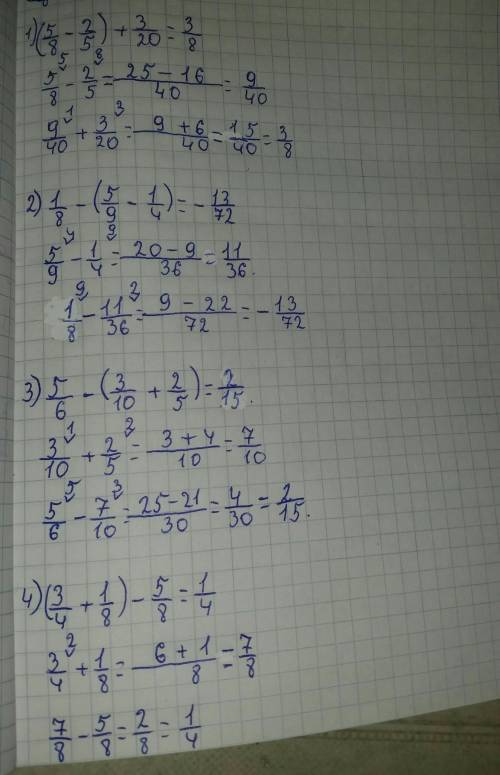 1) (5/8 - 2/5) + 3/20 = 3/8
5/8 ⁵ - 2/5 ⁸ = 25 - 16/40 = 9/40
9/40 ¹ + 3/20 ² = 9 + 6/40 = 15/40 = 3/8
2) 1/8 - (5/9 - 1/4) = - 13/72
5/9 ⁴ - 1/4 ⁹ = 20 - 9/36 = 11/36.
1/8 ⁹ - 11/36 ² = 9 - 22/72 = - 13/72
3) 5/6 - (3/10 + 2/5) = 2/15.
3/10 ¹ + 2/5 ² = 3 + 4/10 = 7/10
5/6 ⁵ - 7/10 ³ = 25 - 21/30 = 4/30 = 2/15.
4) (3/4 + 1/8) - 5/8 = 1/4
3/4 ² + 1/8 = 6 + 1/8 = 7/8
7/8 - 5/8 = 2/8 = 1/4